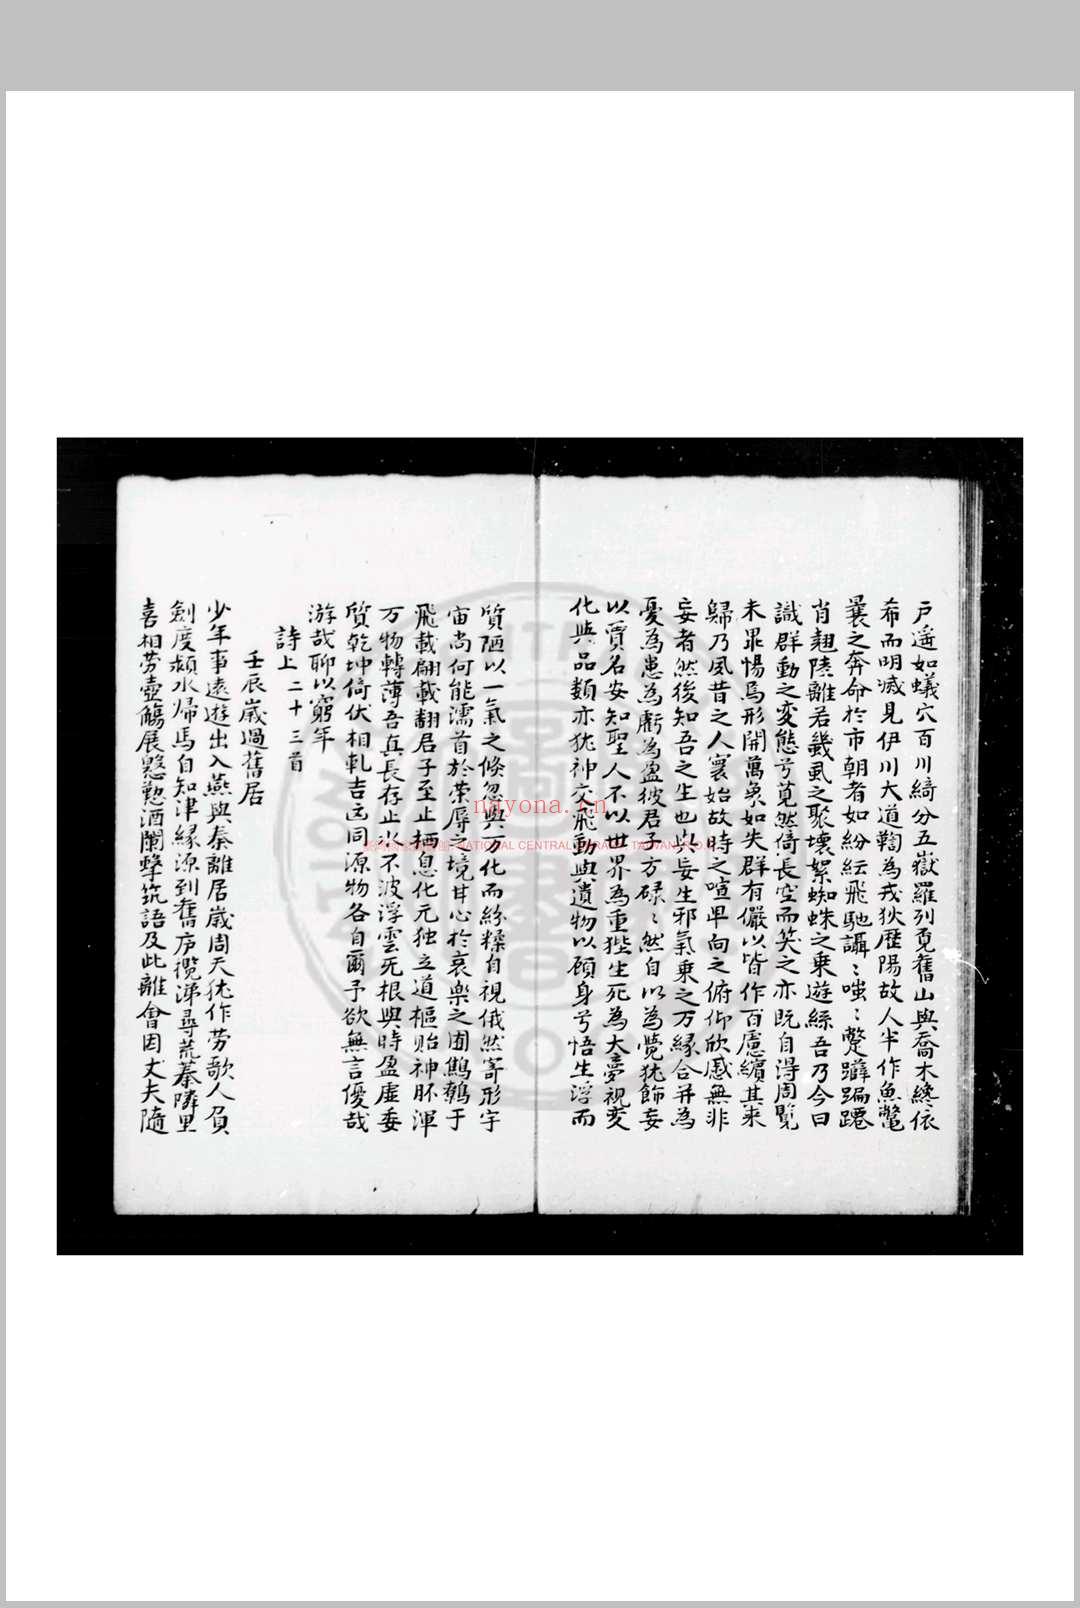 戶遙如蟻穴百川綺分五嶽羅列覓舊山與喬木纔依
希而明滅見伊川大道鞫為戎狄歷陽故人半作魚鼈
曩之奔命於市朝者如紛紜飛馳讘〻嗤〻蹩躃蹁躚
肖翹陸離若蟣虱之聚壞絮蜘蛛之乗遊絲吾乃今曰
識群動之変態兮莧然倚長空而笑之亦既自淂周覧
未罷惕焉形開萬象如失群有儼以皆作百慮繽其来
歸乃夙昔之人寰始故時之喧卑向之俯仰欣慼無非
妄者然後知吾之生也與妄生邪氣乗之万緣合并為
憂為患為虧為盈彼君子方碌〻然自以為覺犹飾妄
以賈名安知聖人不以世界為重狴生死為大夢視变
化與品類亦犹神交飛動與遺物以顧身兮悟生浮而
質陋以一氣之倏忽與万化而紛糅自視俄然寄形宇
宙尚何能濡首於荣辱之境甘心於哀樂之囿鷦鷯于
飛載翩載翻君子至止栖息化元独立道樞貽神胚渾
万物轉薄吾真長存止水不波浮雲死根與時盈虛委
质乾坤倚伏相軋吉凶同源物各自爾予欲無言優哉
游哉聊以窮年
詩上 二十三首
壬辰歲過舊居
少年事遠遊出入燕與秦離居歲周天犹作劳歌人負
劍度潁水帰馬自知津縁源到舊庐攬涕尋荒蓁隣里
喜相劳壺觴展慇懃酒闌擊筑語及此離會因丈夫隨
nayona.cn
NATIONAL CENTRAL LIBRARY, TAIWAN, R.O.C